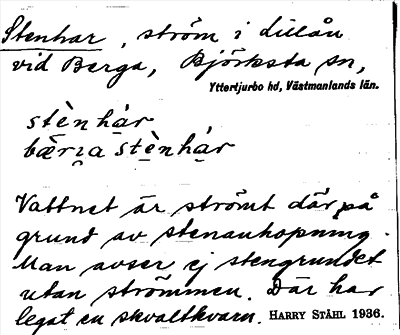 Stenhar, ström i lillån
vid Berga, Björksta sn,
Yttertjurbo hd, Västmanlands län.
stènhạr
bæ̀rɪ̯a stènhạ̀r
Vattnet är strömt där på
grund av stenanhopning.
Man avser ej stengrundet
utan strömmen. Där har
legat en skvaltkvarn. HARRY STÅHL 1936.